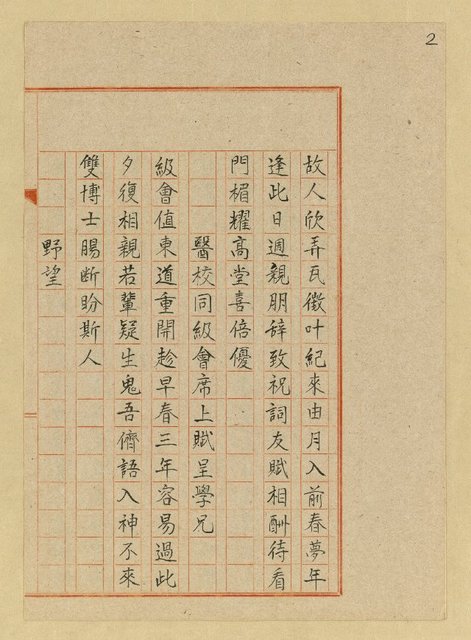 2
故人欣弄瓦徵叶紀來由月入前春夢年
逢此日週親朋辞致祝詞友賦相酬待看
門楣耀高堂喜倍優
醫校同級會席上賦呈學兄
級會值東道重開趁早春三年容易過此
夕復相親若輩疑生鬼吾儕語入神不來
雙博士腸断盼斯人
野望